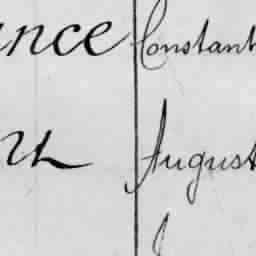 ince Constant
un August